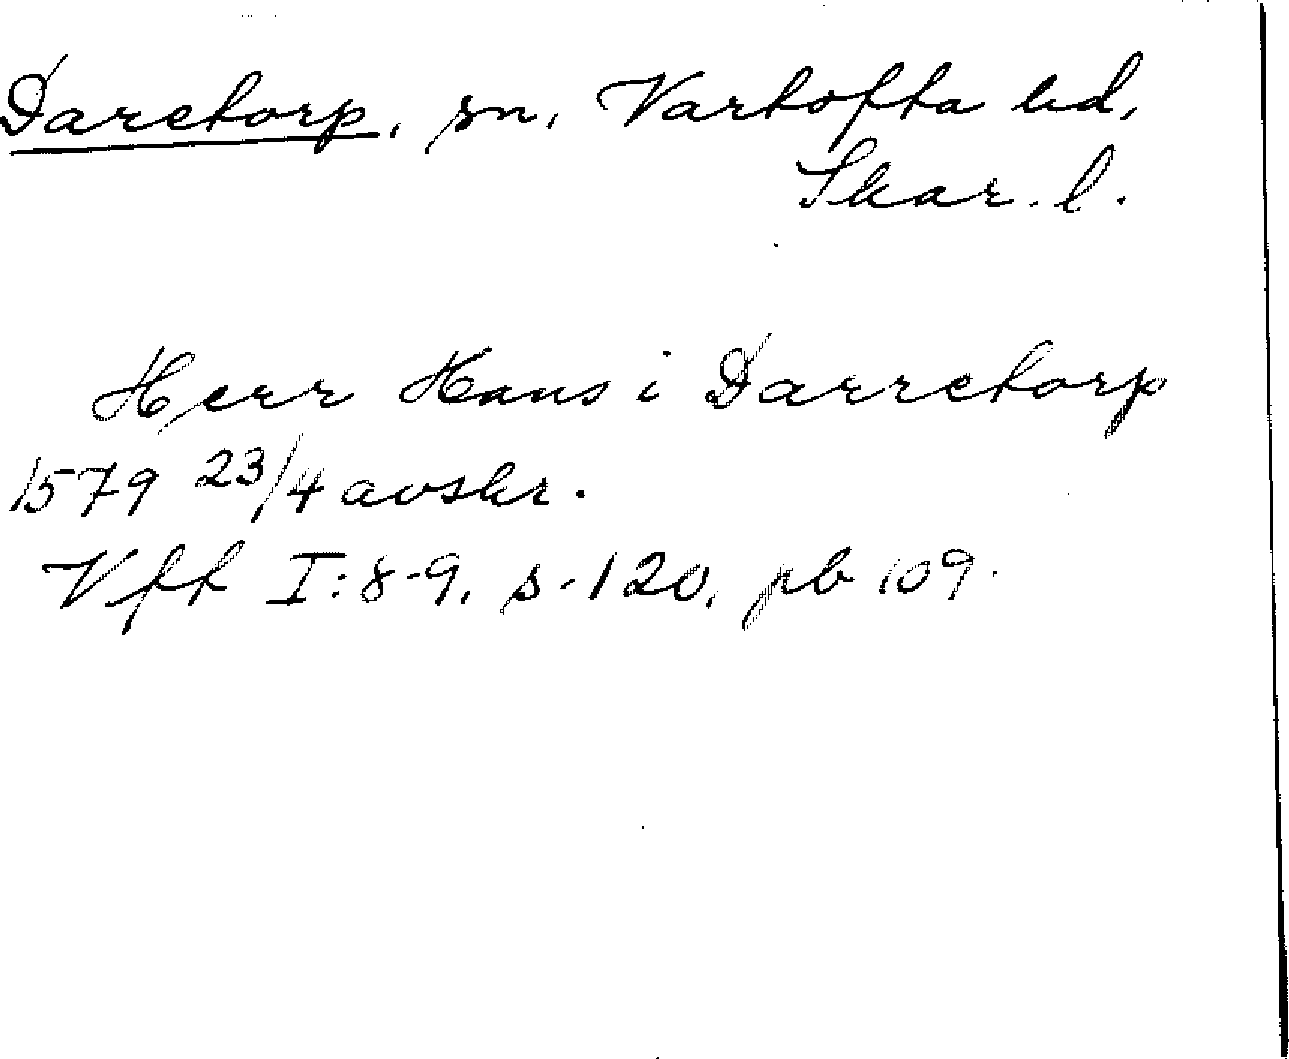 Daretorp, sn, Vartofta hd,
Skar. l.
Herr Hans i Darretorp
1579 23/4 avskr.
Vft I:8-9, s. 120, pb 109.